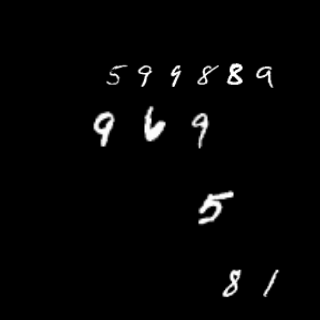 599889
969
5
81